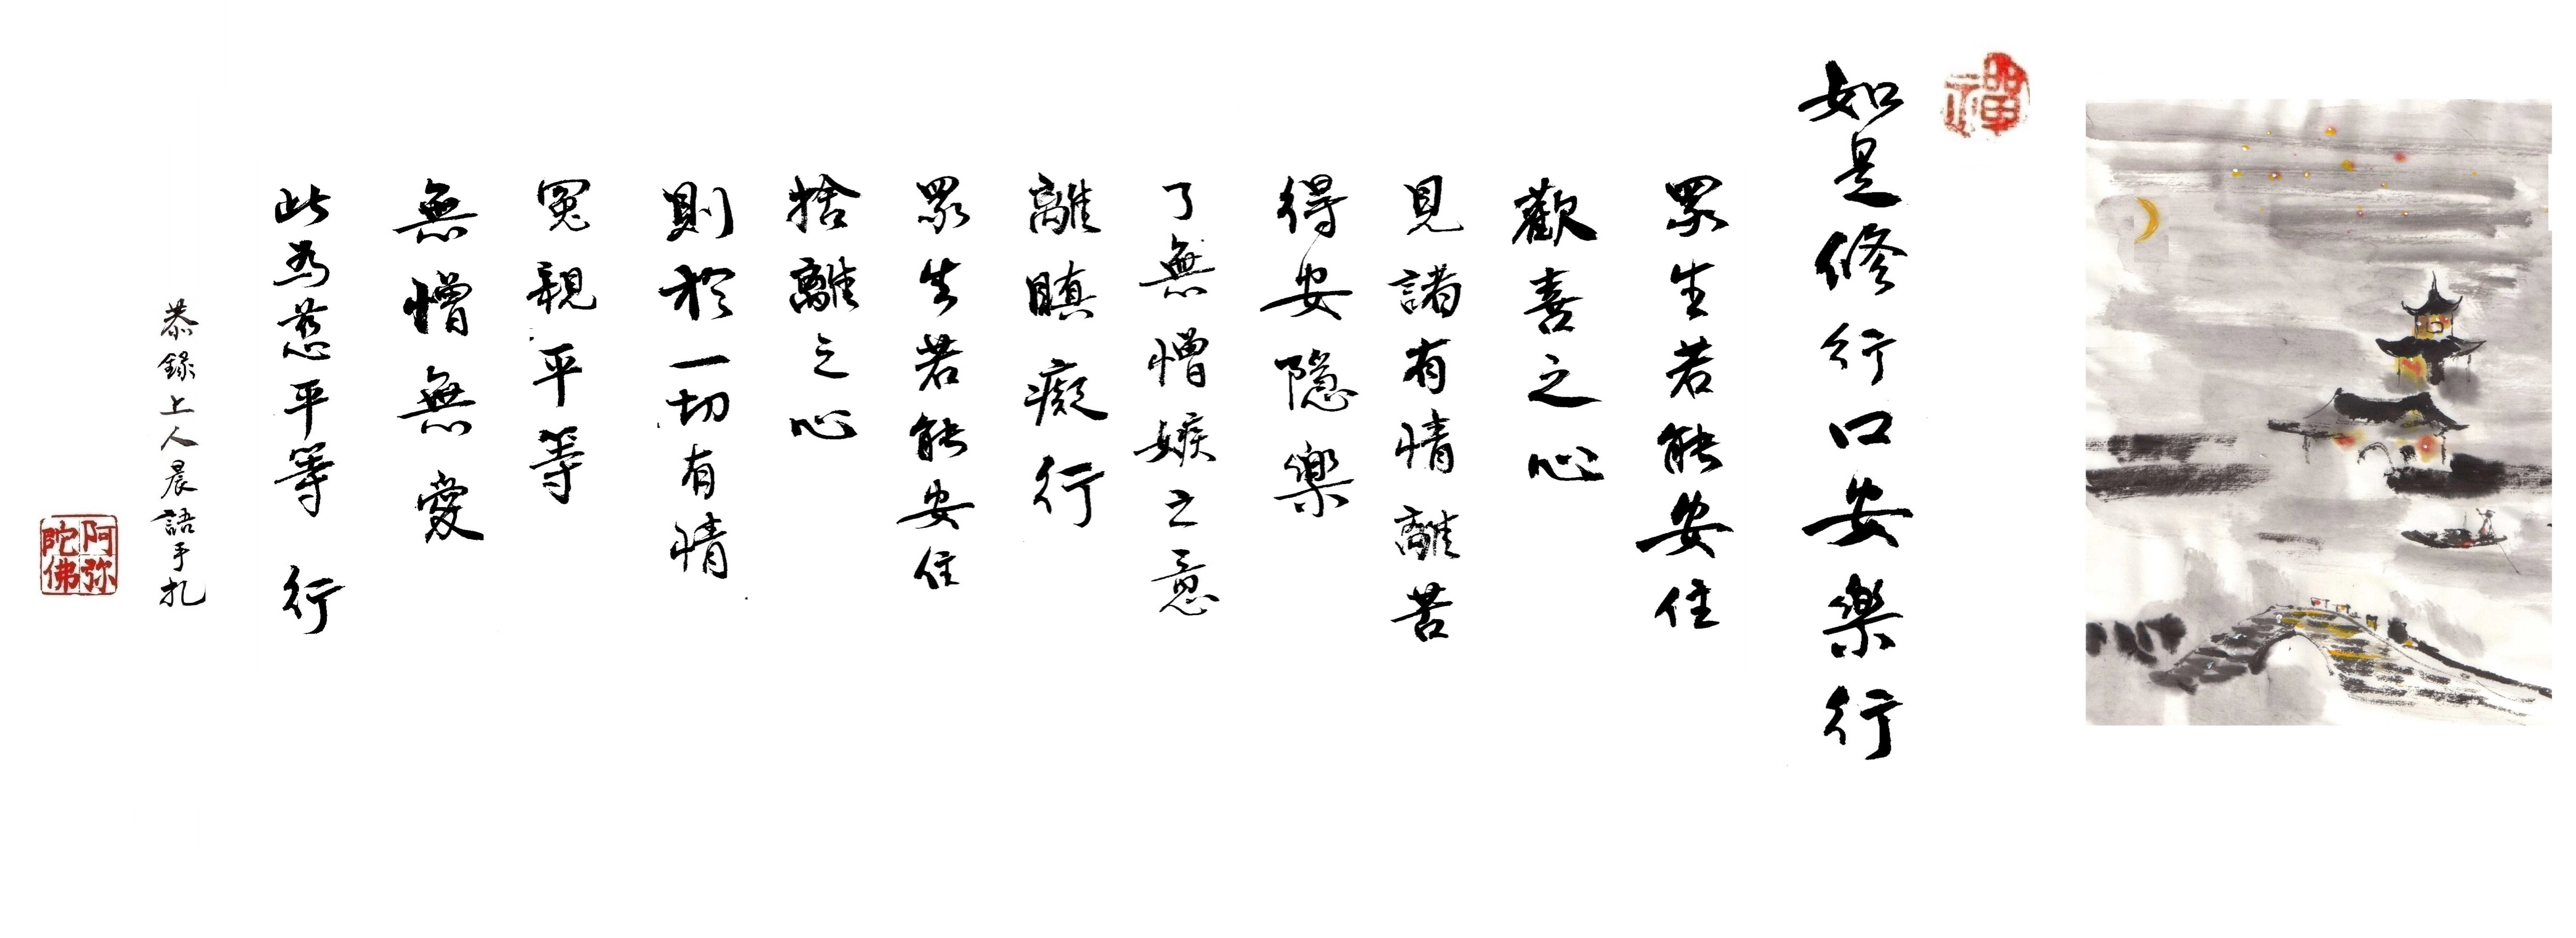 禪
如是修行口安樂行
眾生若能安住
歡喜之心
見諸有情離苦
得安隱樂
了無憎嫉之意
離瞋癡行
眾生若能安住
捨離之心
則於一切有情
冤親平等
無憎無愛
此為慈平等行
恭錄上人晨語手札
阿弥
陀佛